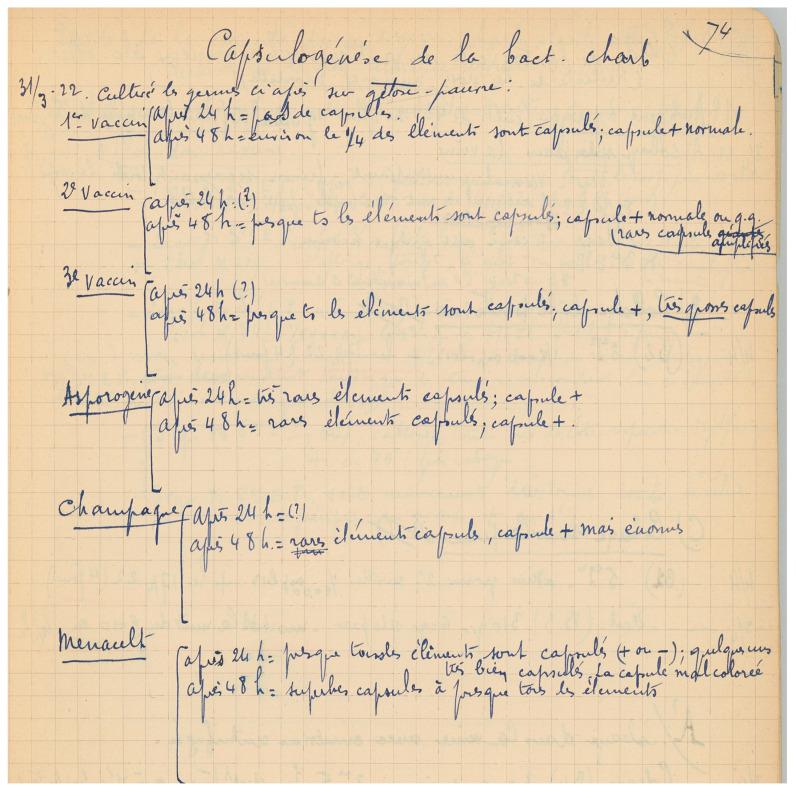 74
Capsulogénèse de la bact. charb
31/3-22. Cultivé les germes ci après sur gélose-pauvre:
1er vaccin après 24 h = pas de capsules.
après 48 h = environ le 1/4 des éléments sont capsulés; capsule + normale.
2e vaccin après 24 h. (?)
après 48 h = presque ts les éléments sont capsulés; capsule + normale ou q.q.
rares capsules amplifiés
3e vaccin après 24 h (?)
après 48 h = presque ts les éléments sont capsulés; capsule +, très grosses capsules
Asporogène après 24 h = très rares éléments capsulés; capsule +
après 48 h = rares éléments capsulés; capsule +.
Champagne après 24 h = (?)
après 48 h. = rares éléments capsulés, capsule + mais énormes
Menacelt après 24 h = presque tous les éléments sont capsulés (+ ou -); quelques uns
très bien capsulés. La capsule mal colorée
après 48 h = superbes capsules à presque tous les éléments